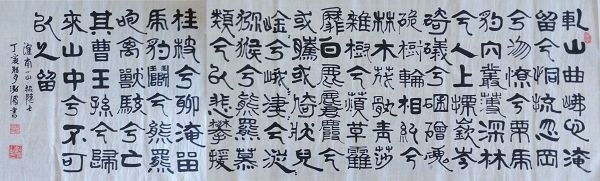 軋山曲岪心淹
留兮恫慌忽罔
兮沕憭兮栗虎
豹穴叢薄深林
兮人上慄嶔岑
碕礒兮碅磳磈
硊樹輪相糾兮
林木茷骫青莎
雜樹兮薠草靃
靡白鹿麏麚兮
或騰或倚狀皃
崯兮峨淒兮漎
獼猴兮熊羆慕
類兮以悲攀援
桂枝兮聊淹留
虎豹鬭兮熊羆
咆禽獸駭兮亡
其曹王孫兮歸
來山中兮不可
以久留
淮南小山招隱士
丁亥 書